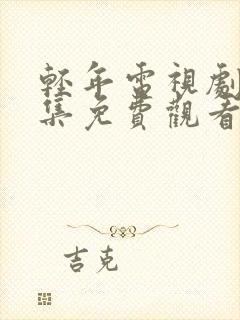 輕年電視劇
集免費觀看
吉克